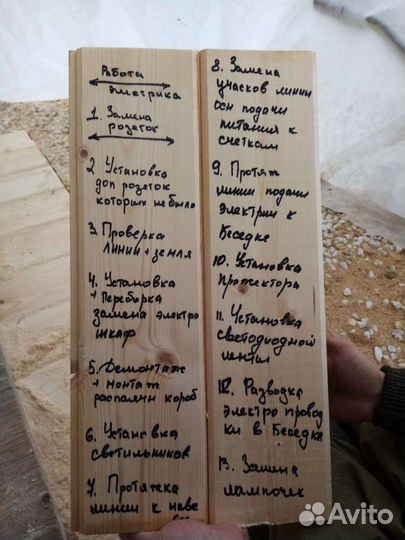 Работа
электрика
1. Замена
розеток
2 Установка
доп розеток
которых не было
3. Проверка
линии + земля
4. Установка
+ Переборка
замена электро
шкаф
5. Демонтаж
+ монтаж
распаячн короб
6. Установка
светильников
7. Протяжка
линии к наве
8. Замена
учасков линии
осн подачи
питания к
счеткам
9. Протяж
линии подачи
электрии к
Беседке
10. Установка
прожектора
11. Установка
светодиодной
ленты
12. Разводка
электро провод
ки в Беседке
13. Замена
лампочек
Avito